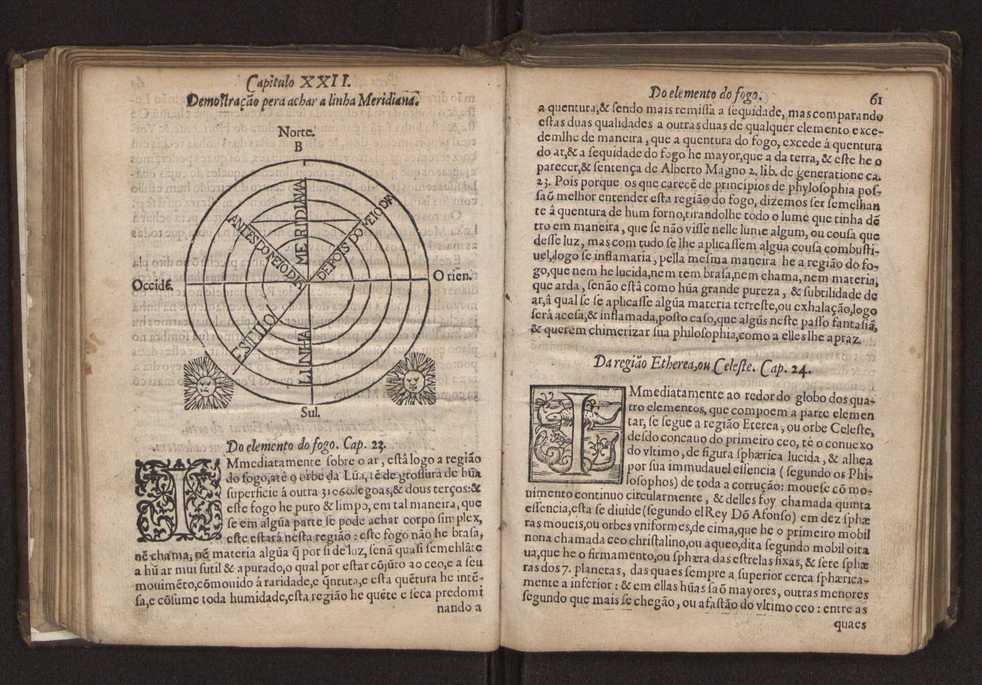 Capitulo XXII.
Demostração pera achar a linha Meridiana.
Norte.
B
MERIDIANA
ANTES DO MEIO DIA
DEPOIS DO MEIO DIA
Occidẽ.
Orien.
ESTILO
LINHA
Sul.
Do elemento do fogo. Cap. 23.
IMmediatamente sobre o ar, está logo a região
do fogo, atè o orbe da Lũa, tẽ de grossura de hũa
superficie á outra 31660. legoas, & dous terços: &
este fogo he puro & limpo, em tal maneira, que
se em algũa parte se pode achar corpo simplex,
este estará nesta região: este fogo não he brasa,
nẽ chama, nẽ materia algũa q̃ por si dè luz, senã quasi semelhãte
a hũ ar mui sutil & apurado, o qual por estar cõjũto ao ceo, e a seu
mouimẽto, cõmouido á raridade, e quẽtura, e esta quẽtura he intẽ-
sa, e cõsume toda humidade, esta região he quẽte e seca predomi
nando a
Do elemento do fogo.
61
a quentura, & sendo mais remissa a sequidade, mas comparando
estas duas qualidades a outras duas de qualquer elemento exce-
demlhe de maneira, que a quentura do fogo, excede á quentura
do ar, & a sequidade do fogo he mayor, que a da terra, & este he o
parecer, & sentença de Alberto Magno 2. lib. de generatione ca.
23. Pois porque os que carecẽ de principios de phylosophia pos-
saõ melhor entender esta região do fogo, dizemos ser semelhan
te â quentura de hum forno, tirandolhe todo o lume que tinha dẽ
tro em maneira, que se não visse nelle lume algum, ou cousa que
desse luz, mas com tudo se lhe aplicassem algũa cousa combusti-
uel, logo se inflamaria, pella mesma maneira he a região do fo-
go, que nem he lucida, nem tem brasa, nem chama, nem materia,
que arda, senão está como hũa grande pureza, & subtilidade de
ar, á qual se se aplicasse algũa materia terreste, ou exhalação, logo
será acesa, & inflamada, posto caso, que algũs neste passo fantasiã,
& querem chimerizar sua philosophia, como a elles lhe apraz.
Da região Etherea, ou Celeste. Cap. 24.
IMmediatamente ao redor do globo dos qua-
tro elementos, que compoem a parte elemen
tar, se segue a região Eterea, ou orbe Celeste,
desdo concauo do primeiro ceo, té o conuexo
do vltimo, de figura sphærica lucida, & alhea
por sua immudauel essencia (segundo os Phi-
losophos) de toda a corrução: mouese cõ mo-
uimento continuo circularmente, & delles foy chamada quinta
essencia, esta se diuide (segundo el Rey Dõ Afonso) em dez sphæ
ras moueis, ou orbes vniformes, de cima, que he o primeiro mobil
nona chamada ceo christalino, ou aqueo, dita segundo mobil oita
ua, que he o firmamento, ou sphæra das estrelas fixas, & sete sphæ
ras dos 7. planetas, das quaes sempre a superior cerca sphærica-
mente a inferior: & em ellas hũas saõ mayores, outras menores
segundo que mais se chegão, ou afastão do vltimo ceo: entre as
quaes